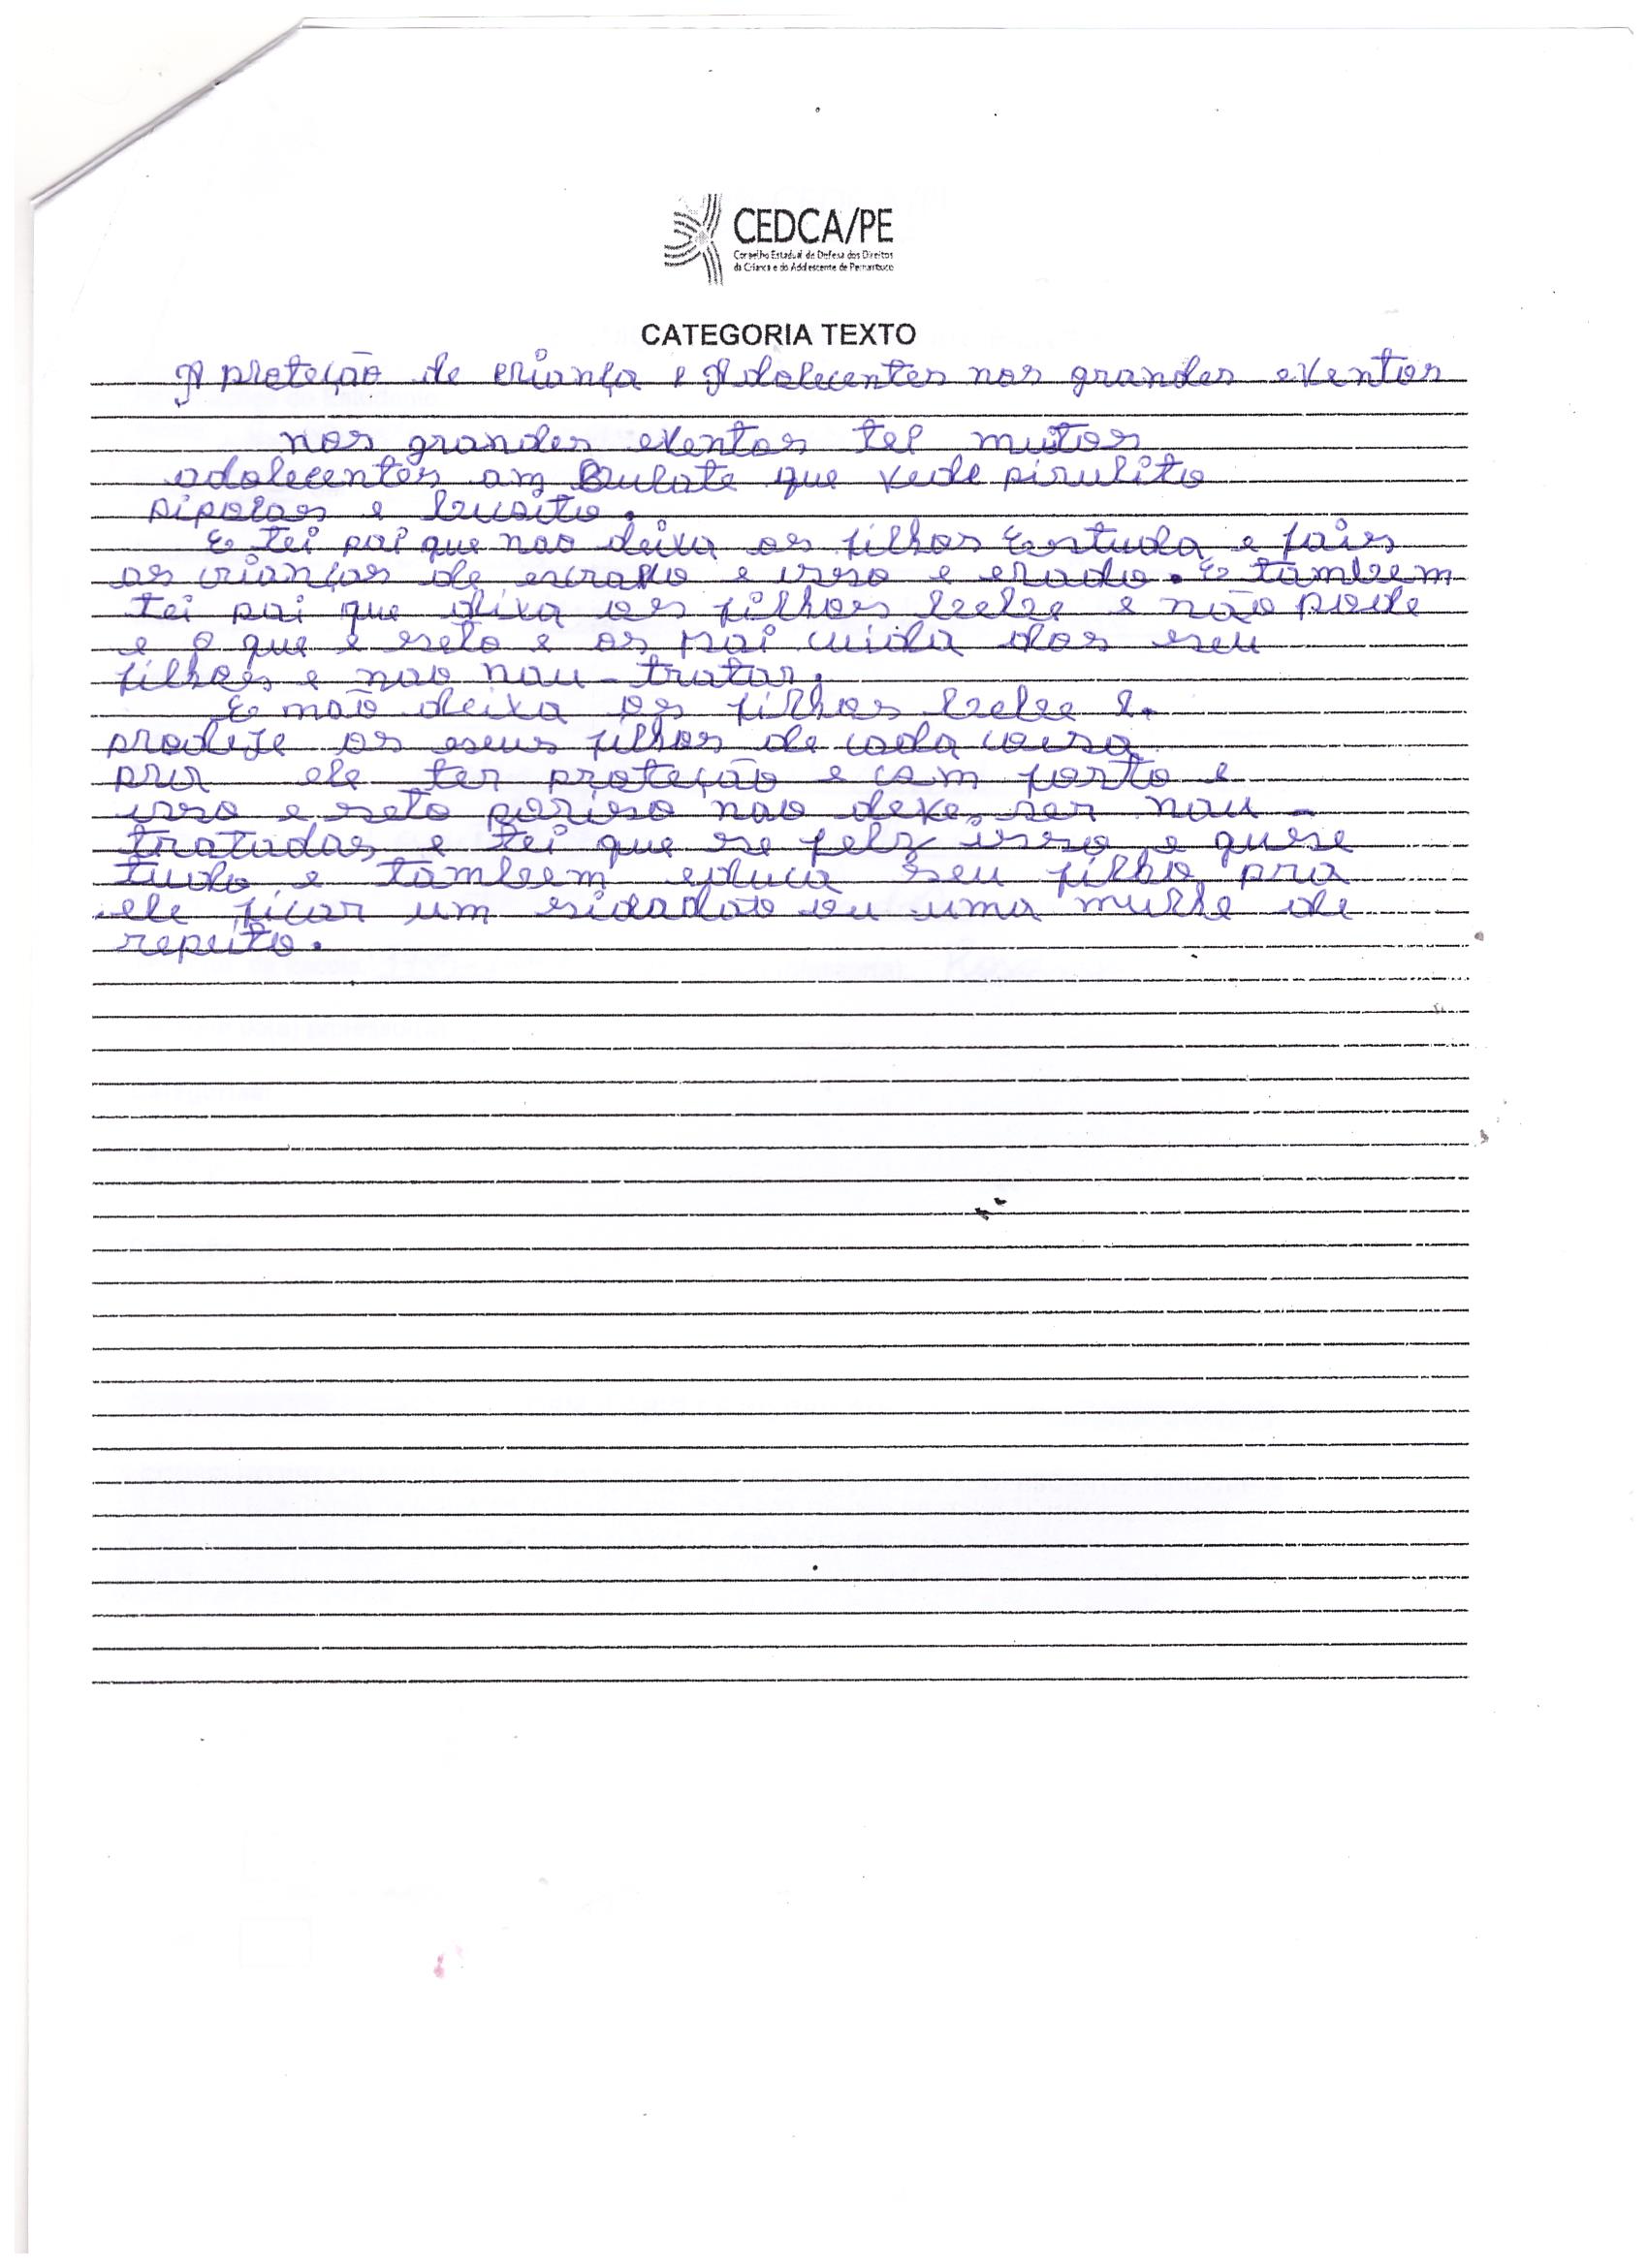 CEDCA/PE
Conselho Estadual de Defesa dos Direitos
da Criança e do Adolescente de Pernambuco
CATEGORIA TEXTO
A proteção de criança e Adolecentes nos grandes eventos
nos grandes eventos tei muitos
adolecentes am Bulate que vede pirulito
pipocas e
E tei pai que nao deixa os filhos Estuda e fais
as crianças de escravo e isso e erado. E tambem
tei pai que dixa os filhos bebe e não pode
e o que e seto e os pai cuida dos seu
filhos e nao nau-tratar.
E não deixa os filhos bebe e.
prodeje os seus filhos de cada coisa
pra ele ter proteção e com forto e
isso e seto poriso nao deve ser nau-
tratadas e tei que se feliz isso e quase
tudo e tambem educa seu filho pra
ele ficar um sidadão ou uma mulhe de
repeito.